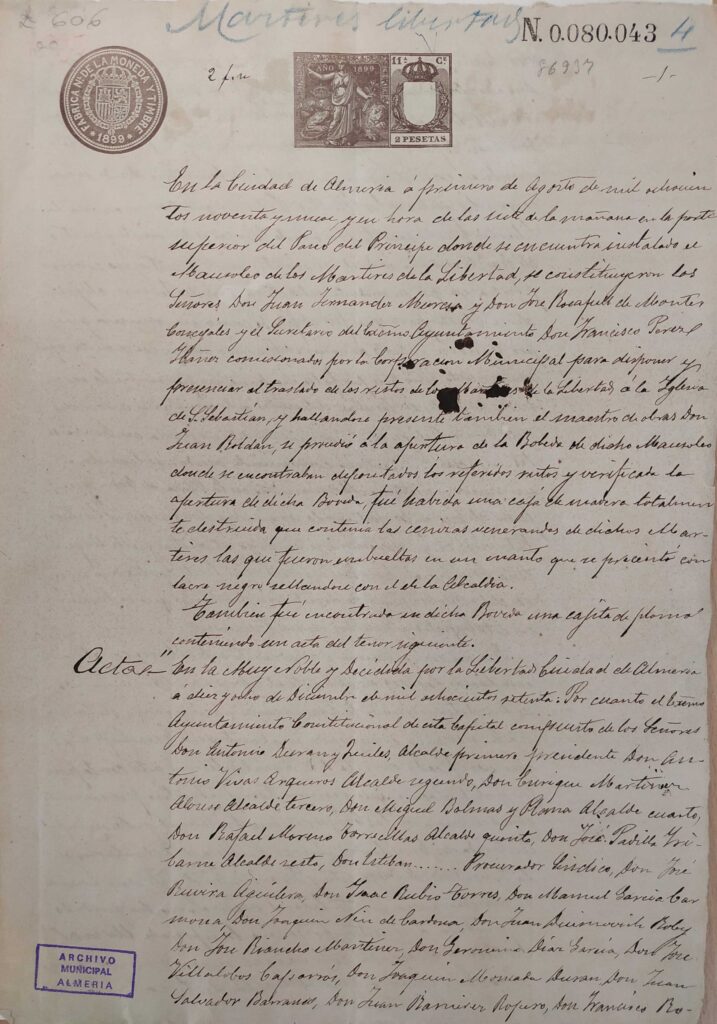 2606
Martires libertad
N. 0.080.043
4
FABRICA N. DE LA MONEDA Y TIMBRE
1899
AÑO 1899
11ª Cª
2 PESETAS
86937
-1-
En la Ciudad de Almeria á primero de Agosto de mil ochocien
tos noventa y nueve, y en hora de las siete de la mañana en la parte
superior del Paseo del Principe donde se encuentra instalado el
Mausoleo de los Martires de la Libertad, se constituyeron los
Señores Don Juan Fernandez Murcia y Don José Rocafull de Montes
Concejales y el Secretario del Excmo Ayuntamiento Don Francisco Perez
Ibañez comisionados por la Corporacion Municipal para disponer y
presenciar el traslado de los restos de los Martires de la Libertad á la Iglesia
de S. Sebastian, y hallandose presente tambien el maestro de obras Don
Juan Roldan, se procedió á la apertura de la Boveda de dicho Mausoleo
donde se encontraban depositados los referidos restos y verificada la
apertura de dicha Boveda, fué habida una caja de madera totalmen
te destruida que contenia las cenizas venerandas de dichos Mar-
tires las que fueron embueltas en un manto que se precintó con
lacre negro sellandose con el de la Alcaldia.
Tambien fué encontrada en dicha Boveda una cajita de plomo
conteniendo un acta del tenor siguiente.
Acta " En la Muy Noble y Decidida por la Libertad Ciudad de Almeria
a diez y ocho de Diciembre de mil ochocientos setenta. Por cuanto el Excmo
Ayuntamiento Constitucional de esta Capital compuesto de los Señores
Don Antonio Duran y Quiles, Alcalde primero presidente Don An
tonio Vivas Arqueros Alcalde segundo, Don Enrique Martinez
Alonso Alcalde tercero, Don Miguel Bolmas y Plana Alcalde cuarto,
Don Rafael Moreno Torrecillas Alcalde quinto, Don José Padilla Iri
barne Alcalde sesto, Don Esteban ....... Procurador Sindico, Don José
Ruvira Aguilera, Don Isaac Rubio Torres, Don Manuel Garcia Car
mona, Don Joaquin Nin de Cardona Don Juan
Don José Riancho Martinez, Don Geronimo Diaz Garcia, Don José
Villalobos Don Joaquin Moncada Duran Don Juan
Salvador Barranco, Don Juan Ramirez Don Francisco Ro-
ARCHIVO
MUNICIPAL
ALMERIA